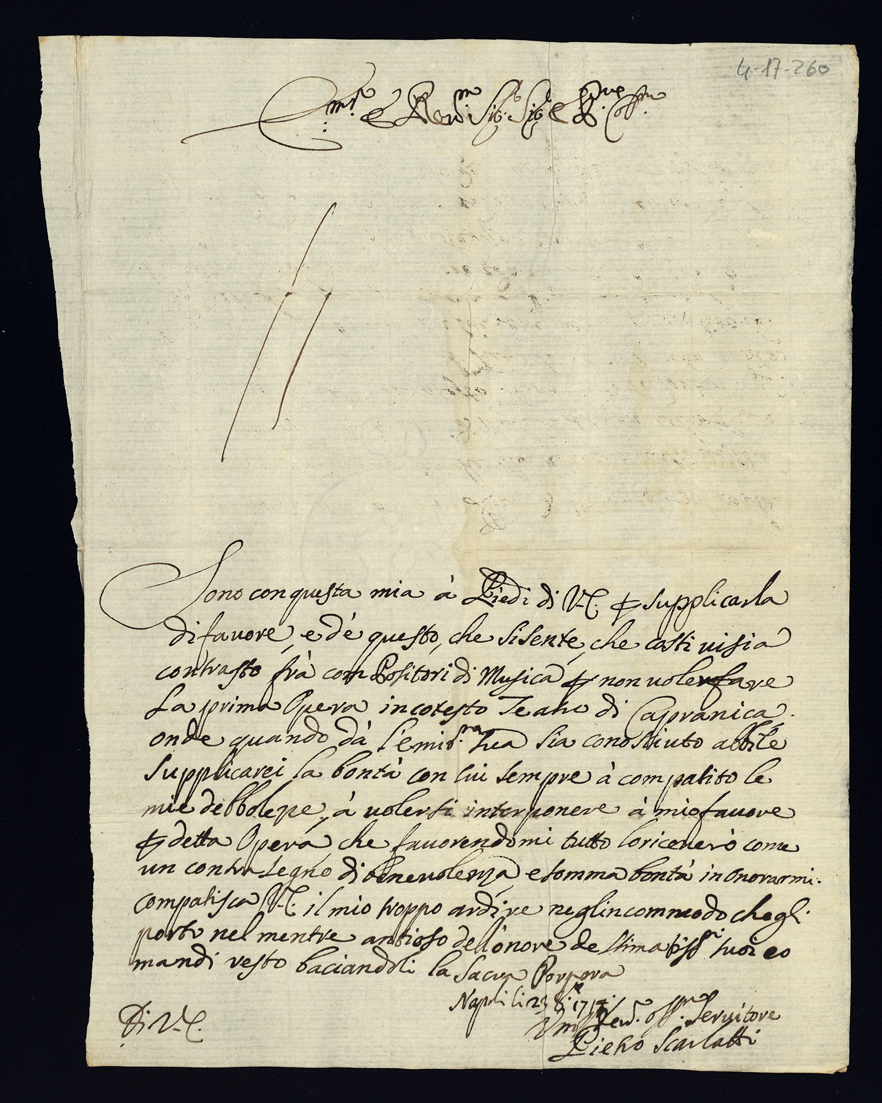 4-17-260
Em.mo e Rev.mo Sig.re Sig.re e P.rone Oss.mo
Sono con questa mia à Piedi di V.E. p supplicarla
di favore, e d'è questo, che si sente, che costi vi sia
contrasto frà com Positori di Musica p non voler fare
La prima Opera in cotesto Teatro di Capranica,
onde quando dà l'emi.za sua sia conosciuto abbile
supplicarei la bontà con cui sempre à compatito le
mie debboleze, à volersi interponere à mio favore
p detta Opera che favorendomi tutto lo riceverò come
un contra segno di benevolenza, e somma bontà in Onorarmi.
compatisca V.E. il mio troppo ardire negl incommodo che gli
porto nel mentre ansioso dell'onore de stimatiss.i suoi co
mandi resto baciandoli la Sacra Porpora
Napoli li 23 8.re
Di V.E.
Um.o Dev.o Oss.mo Servitore
Pietro Scarlatti